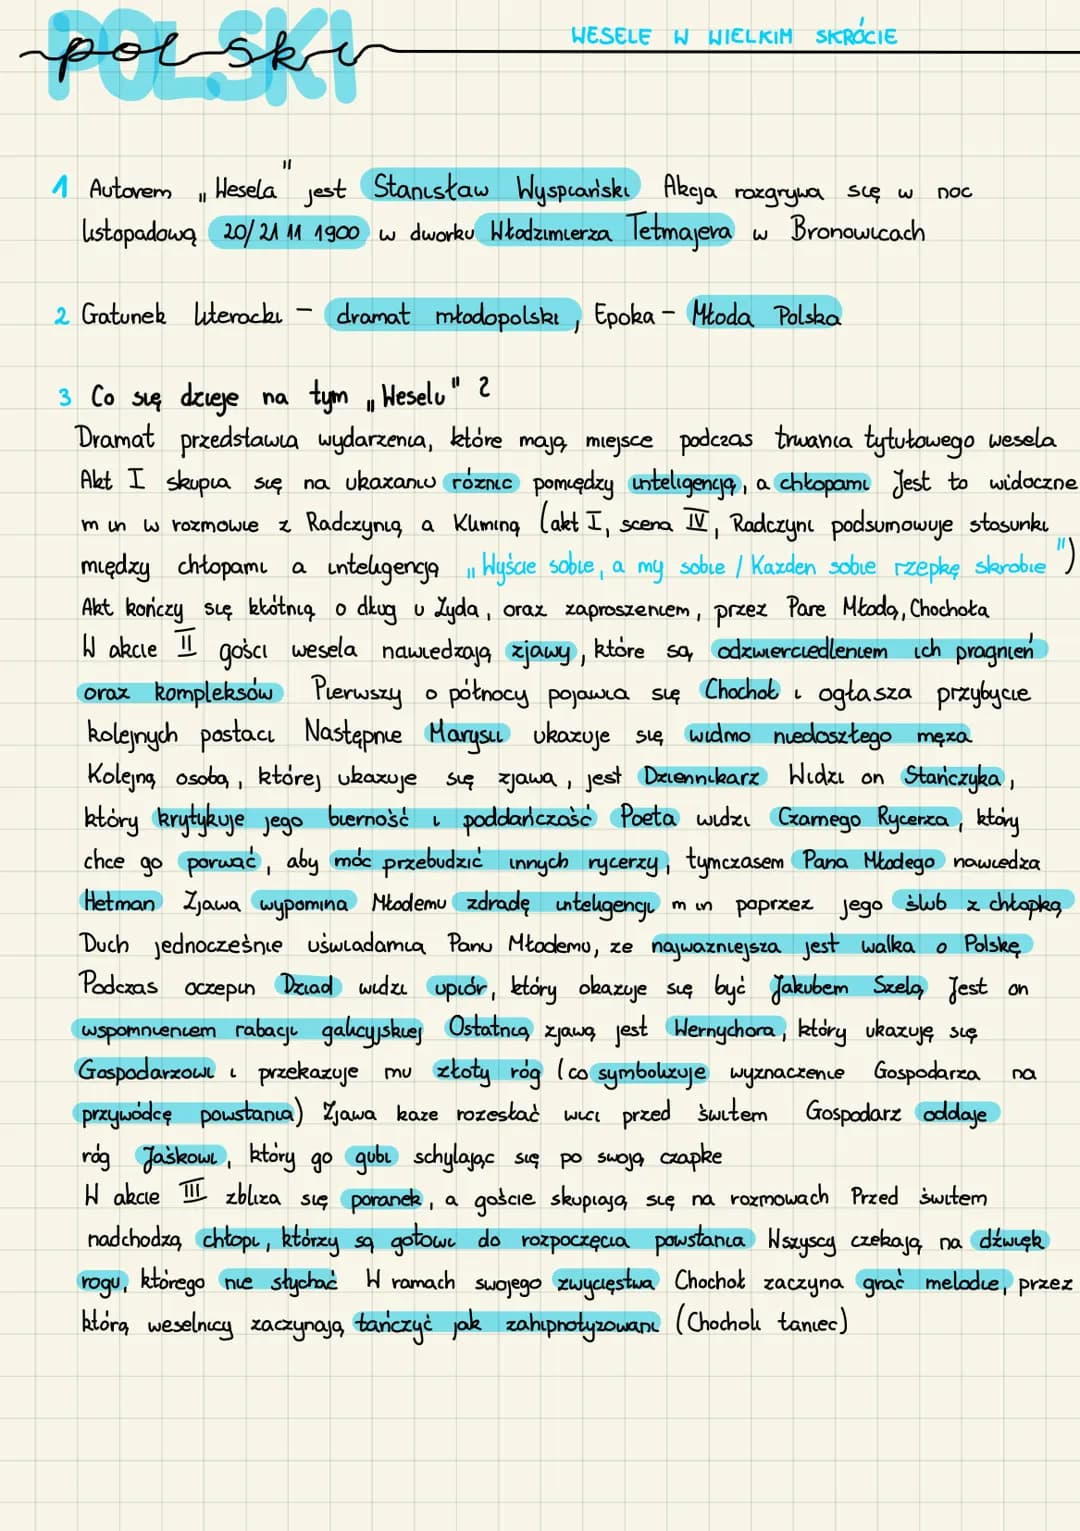 POLSKI
polski
WESELE W WIELKIM SKRÓCIE
1 Autorem „Wesela" jest Stanisław Wyspiański Akcja rozgrywa się w noc
listopadową 20/21 11 1900 w dworku Włodzimierza Tetmajera w Bronowicach
2 Gatunek literacki – dramat młodopolski, Epoka – Młoda Polska
3 Co się dzieje na tym „Weselu" ?
Dramat przedstawia wydarzenia, które mają miejsce podczas trwania tytułowego wesela
Akt I skupia się na ukazaniu różnic pomiędzy inteligencją, a chłopami Jest to widoczne
m in w rozmowie z Radczynią a Kliminą (akt I, scena IV, Radczyni podsumowuje stosunki
między chłopami a inteligencją „Wyście sobie, a my sobie / Każden sobie rzepkę skrobie")
Akt kończy się kłótnią o dług u Żyda, oraz zaproszeniem, przez Pare Młodą, Chochoła
W akcie II gości wesela nawiedzają zjawy, które są odzwierciedleniem ich pragnień
oraz kompleksów Pierwszy o północy pojawia się Chochoł i ogłasza przybycie
kolejnych postaci Następnie Marysii ukazuje się widmo niedoszłego męża
Kolejną osobą, której ukazuje się zjawa, jest Dziennikarz Widzi on Stańczyka,
który krytykuje jego bierność i poddańczość Poeta widzi Czarnego Rycerza, który
chce go porwać, aby móc przebudzić innych rycerzy, tymczasem Pana Młodego nawiedza
Hetman Zjawa wypomina Młodemu zdradę inteligencji m in poprzez jego ślub z chłopką
Duch jednocześnie uświadamia Panu Młodemu, że najważniejsza jest walka o Polskę
Podczas oczepin Dziad widzi upiór, który okazuje się być Jakubem Szelą Jest on
wspomnieniem rabacji galicyjskiej Ostatnią zjawą jest Wernychora, który ukazuję się
Gospodarzowi i przekazuje mu złoty róg (co symbolizuje wyznaczenie Gospodarza na
przywódcę powstania) Zjawa każe rozesłać wici przed świtem Gospodarz oddaje
róg Jaśkowi, który go gubi schylając się po swoją czapke
W akcie III zbliża się poranek, a goście skupiają się na rozmowach Przed świtem
nadchodzą chłopi, którzy są gotowi do rozpoczęcia powstania Wszyscy czekają na dźwięk
rogu, którego nie słychać W ramach swojego zwycięstwa Chochoł zaczyna grać melodie, przez
którą weselnicy zaczynają tańczyć jak zahipnotyzowani (Chocholi taniec)